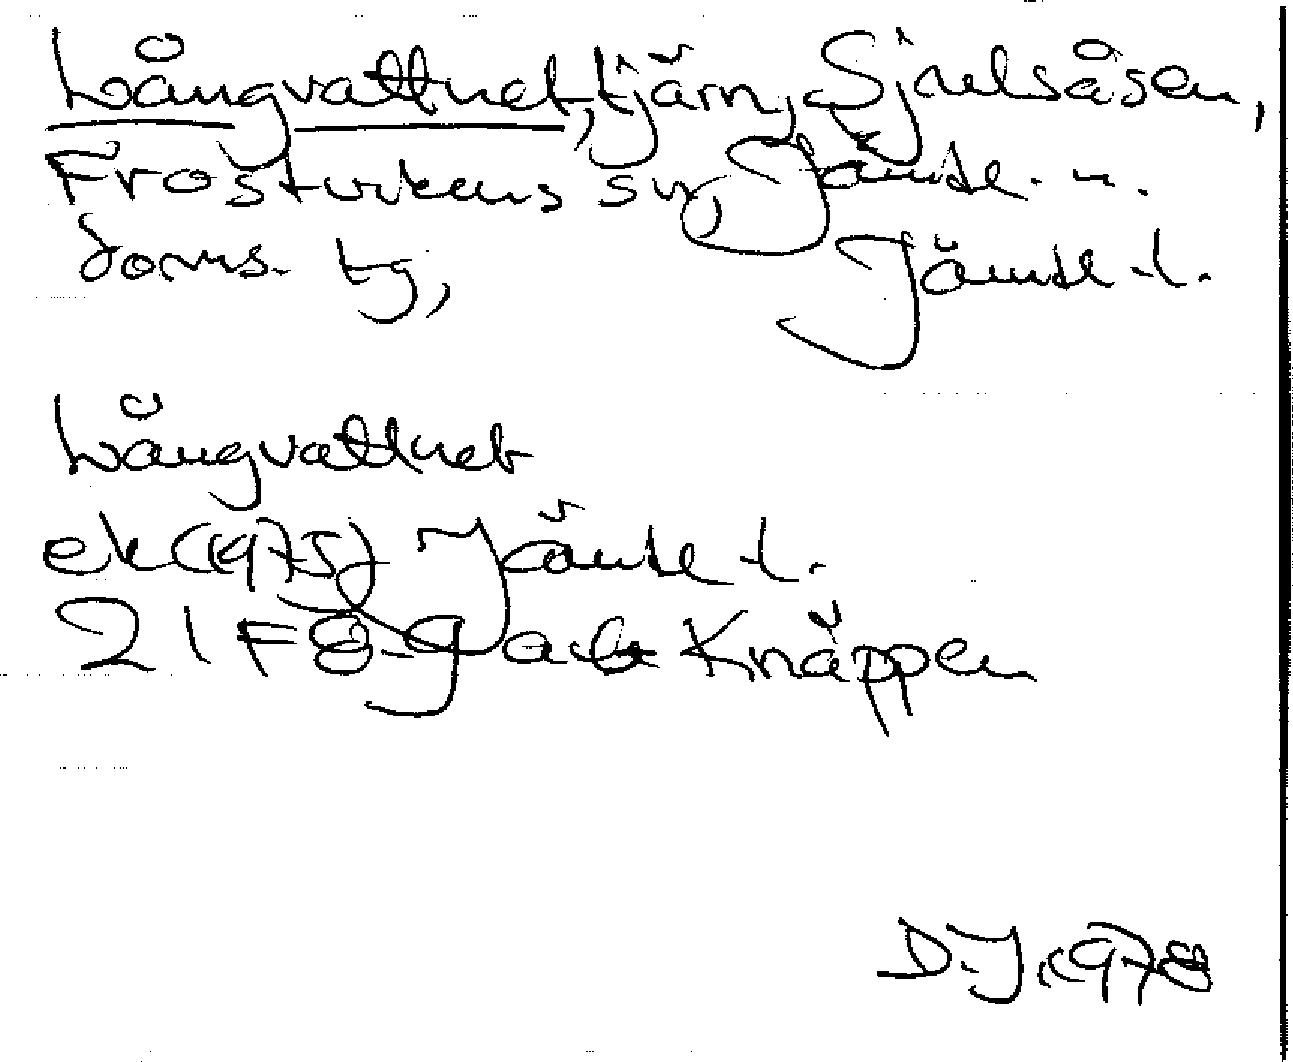 Långvattnet, tjärn, Sjulsåsen,
Frostvikens sn, Jämtl. n.
doms. tg,  Jämtl. l.
Långvattnet
ek (1975) Jämtl l.
21 F 8-9 a-b Knäppen
D.J. 1978